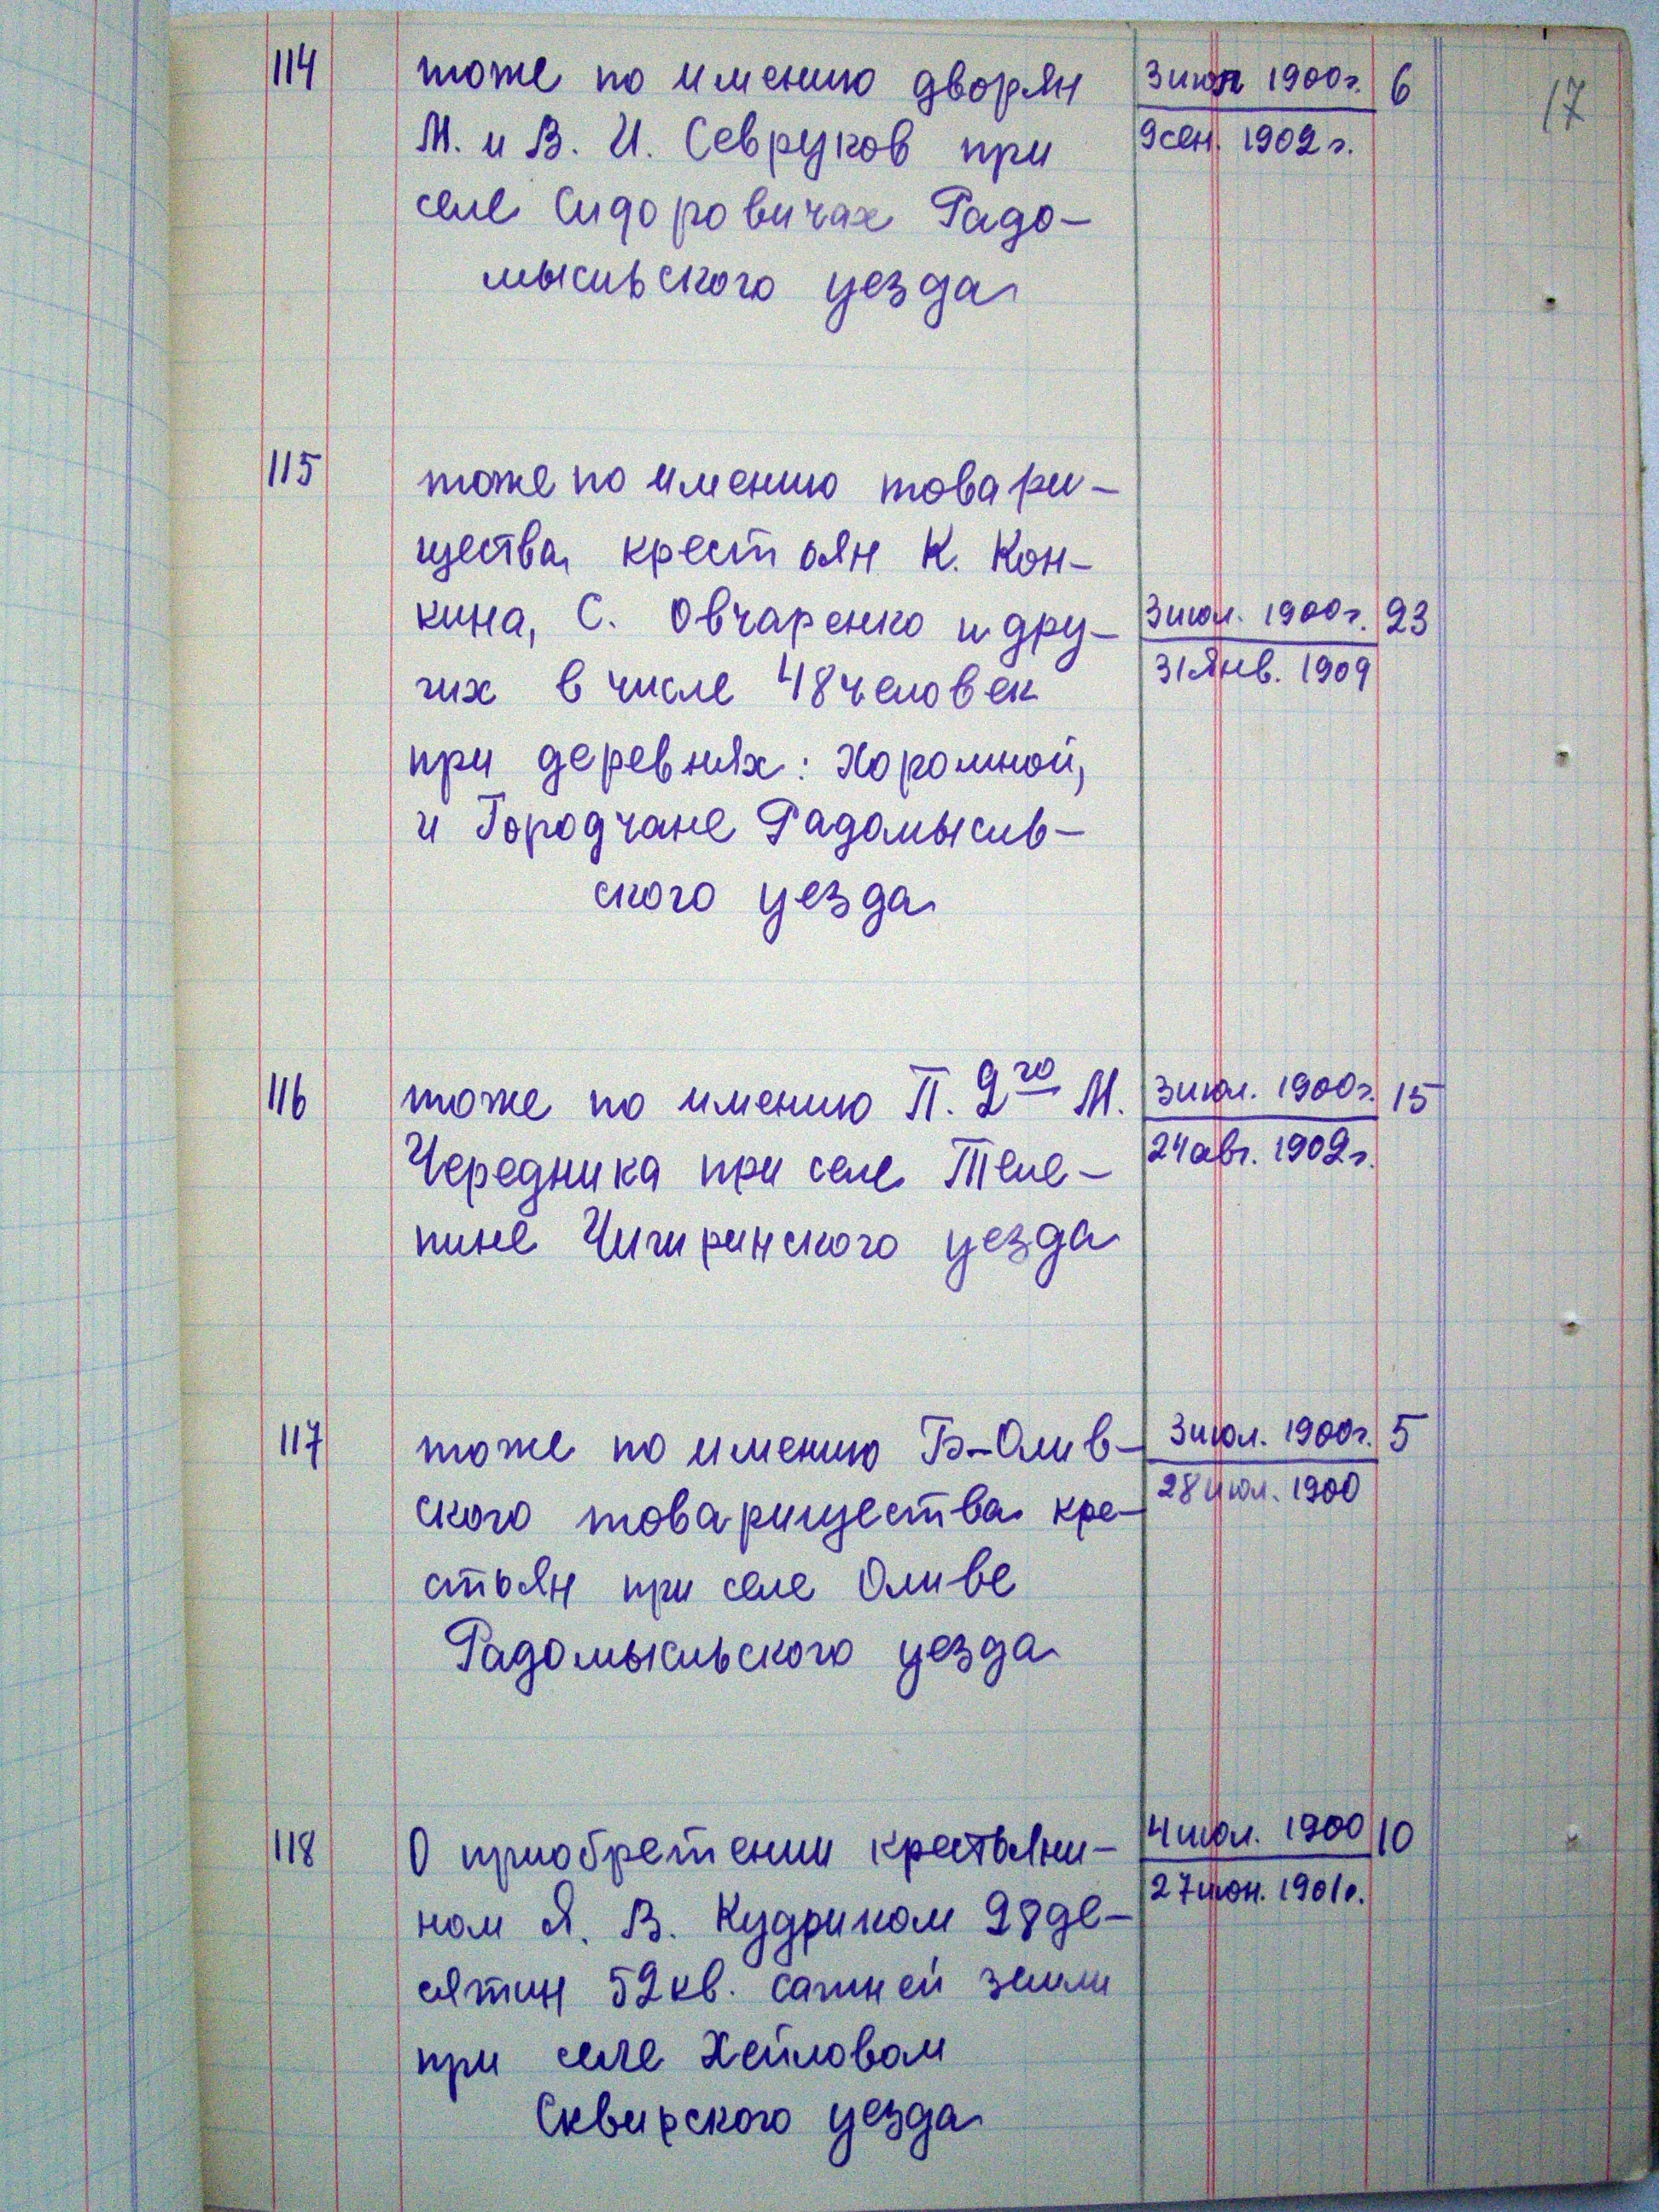 17
114 тоже по имению дворян 3 июл 1900 г. 6
М. и В. И. Севруков при 9 сен. 1902 г.
селе Сидоровичах Радо-
мысльского уезда
115 тоже по имению товари-
щества крестьян К. Кон-
кина, С. Овчаренко и дру- 3 июл. 1900 г. 23
гих в числе 48 человек 31 янв. 1909
при деревнях: Хоромной,
и Городчане Радомысль-
ского уезда
116 тоже по имению П. 2го М. 3 июл. 1900 г. 15
Чередника при селе Теле- 24 авг. 1902 г.
пине Чигиринского уезда
117 тоже по имению Б-Олив- 3 июл. 1900 г. 5
ского товарищества кре- 28 июл. 1900
стьян при селе Оливе
Радомысльского уезда
118 О приобретении крестьяни- 4 июл. 1900 10
ном Я. В. Кудриком 28 де- 27 июн. 1901 г.
сятин 52 кв. сажней земли
при селе Хейловом
Сквирского уезда